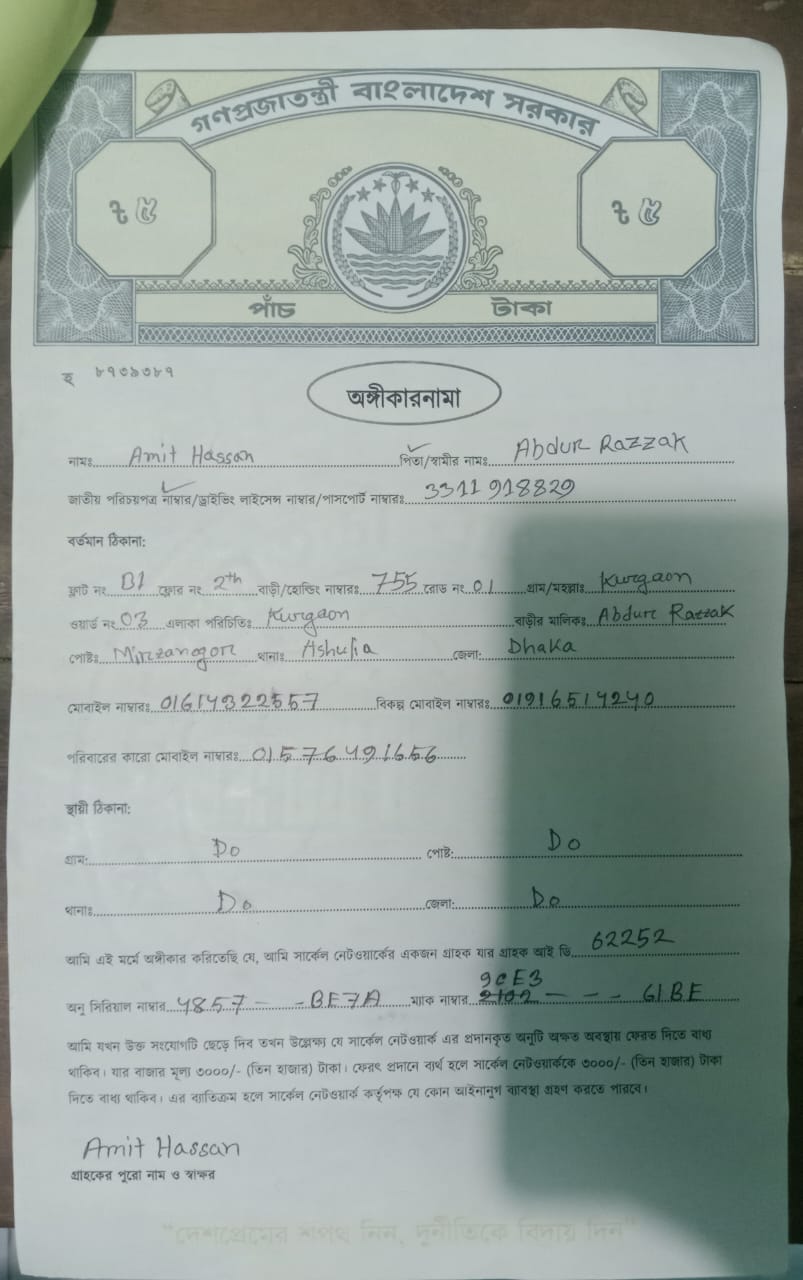 গণপ্রজাতন্ত্রী বাংলাদেশ সরকার
৳ ৫ ৳ ৫
পাঁচ টাকা
হ ৮৭৩৯৩৮৭
অঙ্গীকারনামা
নামঃ Amit Hassan পিতা/স্বামীর নামঃ Abdur Razzak
জাতীয় পরিচয়পত্র নাম্বার/ড্রাইভিং লাইসেন্স নাম্বার/পাসপোর্ট নাম্বারঃ 3311918829
বর্তমান ঠিকানা:
ফ্লাট নং B1 ফ্লোর নং 2th বাড়ী/হোল্ডিং নাম্বারঃ 755 রোড নং 01 গ্রাম/মহল্লাঃ Kurgaon
ওয়ার্ড নং 03 এলাকা পরিচিতিঃ Kurgaon বাড়ীর মালিকঃ Abdur Razzak
পোষ্টঃ Mirzanagor থানাঃ Ashulia জেলা: Dhaka
মোবাইল নাম্বারঃ 01614322557 বিকল্প মোবাইল নাম্বারঃ 01916514240
পরিবারের কারো মোবাইল নাম্বারঃ 01576491656
স্থায়ী ঠিকানা:
গ্রাম: Do পোষ্ট: Do
থানাঃ Do জেলা: Do
আমি এই মর্মে অঙ্গীকার করিতেছি যে, আমি সার্কেল নেটওয়ার্কের একজন গ্রাহক যার গ্রাহক আই ডি 62252
অনু সিরিয়াল নাম্বার 4857 - - BF7A ম্যাক নাম্বার 9CE3 - - - 61BE
আমি যখন উক্ত সংযোগটি ছেড়ে দিব তখন উল্লেক্ষ্য যে সার্কেল নেটওয়ার্ক এর প্রদানকৃত অনুটি অক্ষত অবস্থায় ফেরত দিতে বাধ্য
থাকিব। যার বাজার মূল্য ৩০০০/- (তিন হাজার) টাকা। ফেরৎ প্রদানে ব্যর্থ হলে সার্কেল নেটওয়ার্ককে ৩০০০/- (তিন হাজার) টাকা
দিতে বাধ্য থাকিব। এর ব্যাতিক্রম হলে সার্কেল নেটওয়ার্ক কর্তৃপক্ষ যে কোন আইনানুগ ব্যাবস্থা গ্রহণ করতে পারবে।
Amit Hassan
গ্রাহকের পুরো নাম ও স্বাক্ষর
"দেশপ্রেমের শপথ নিন, দুর্নীতিকে বিদায় দিন"